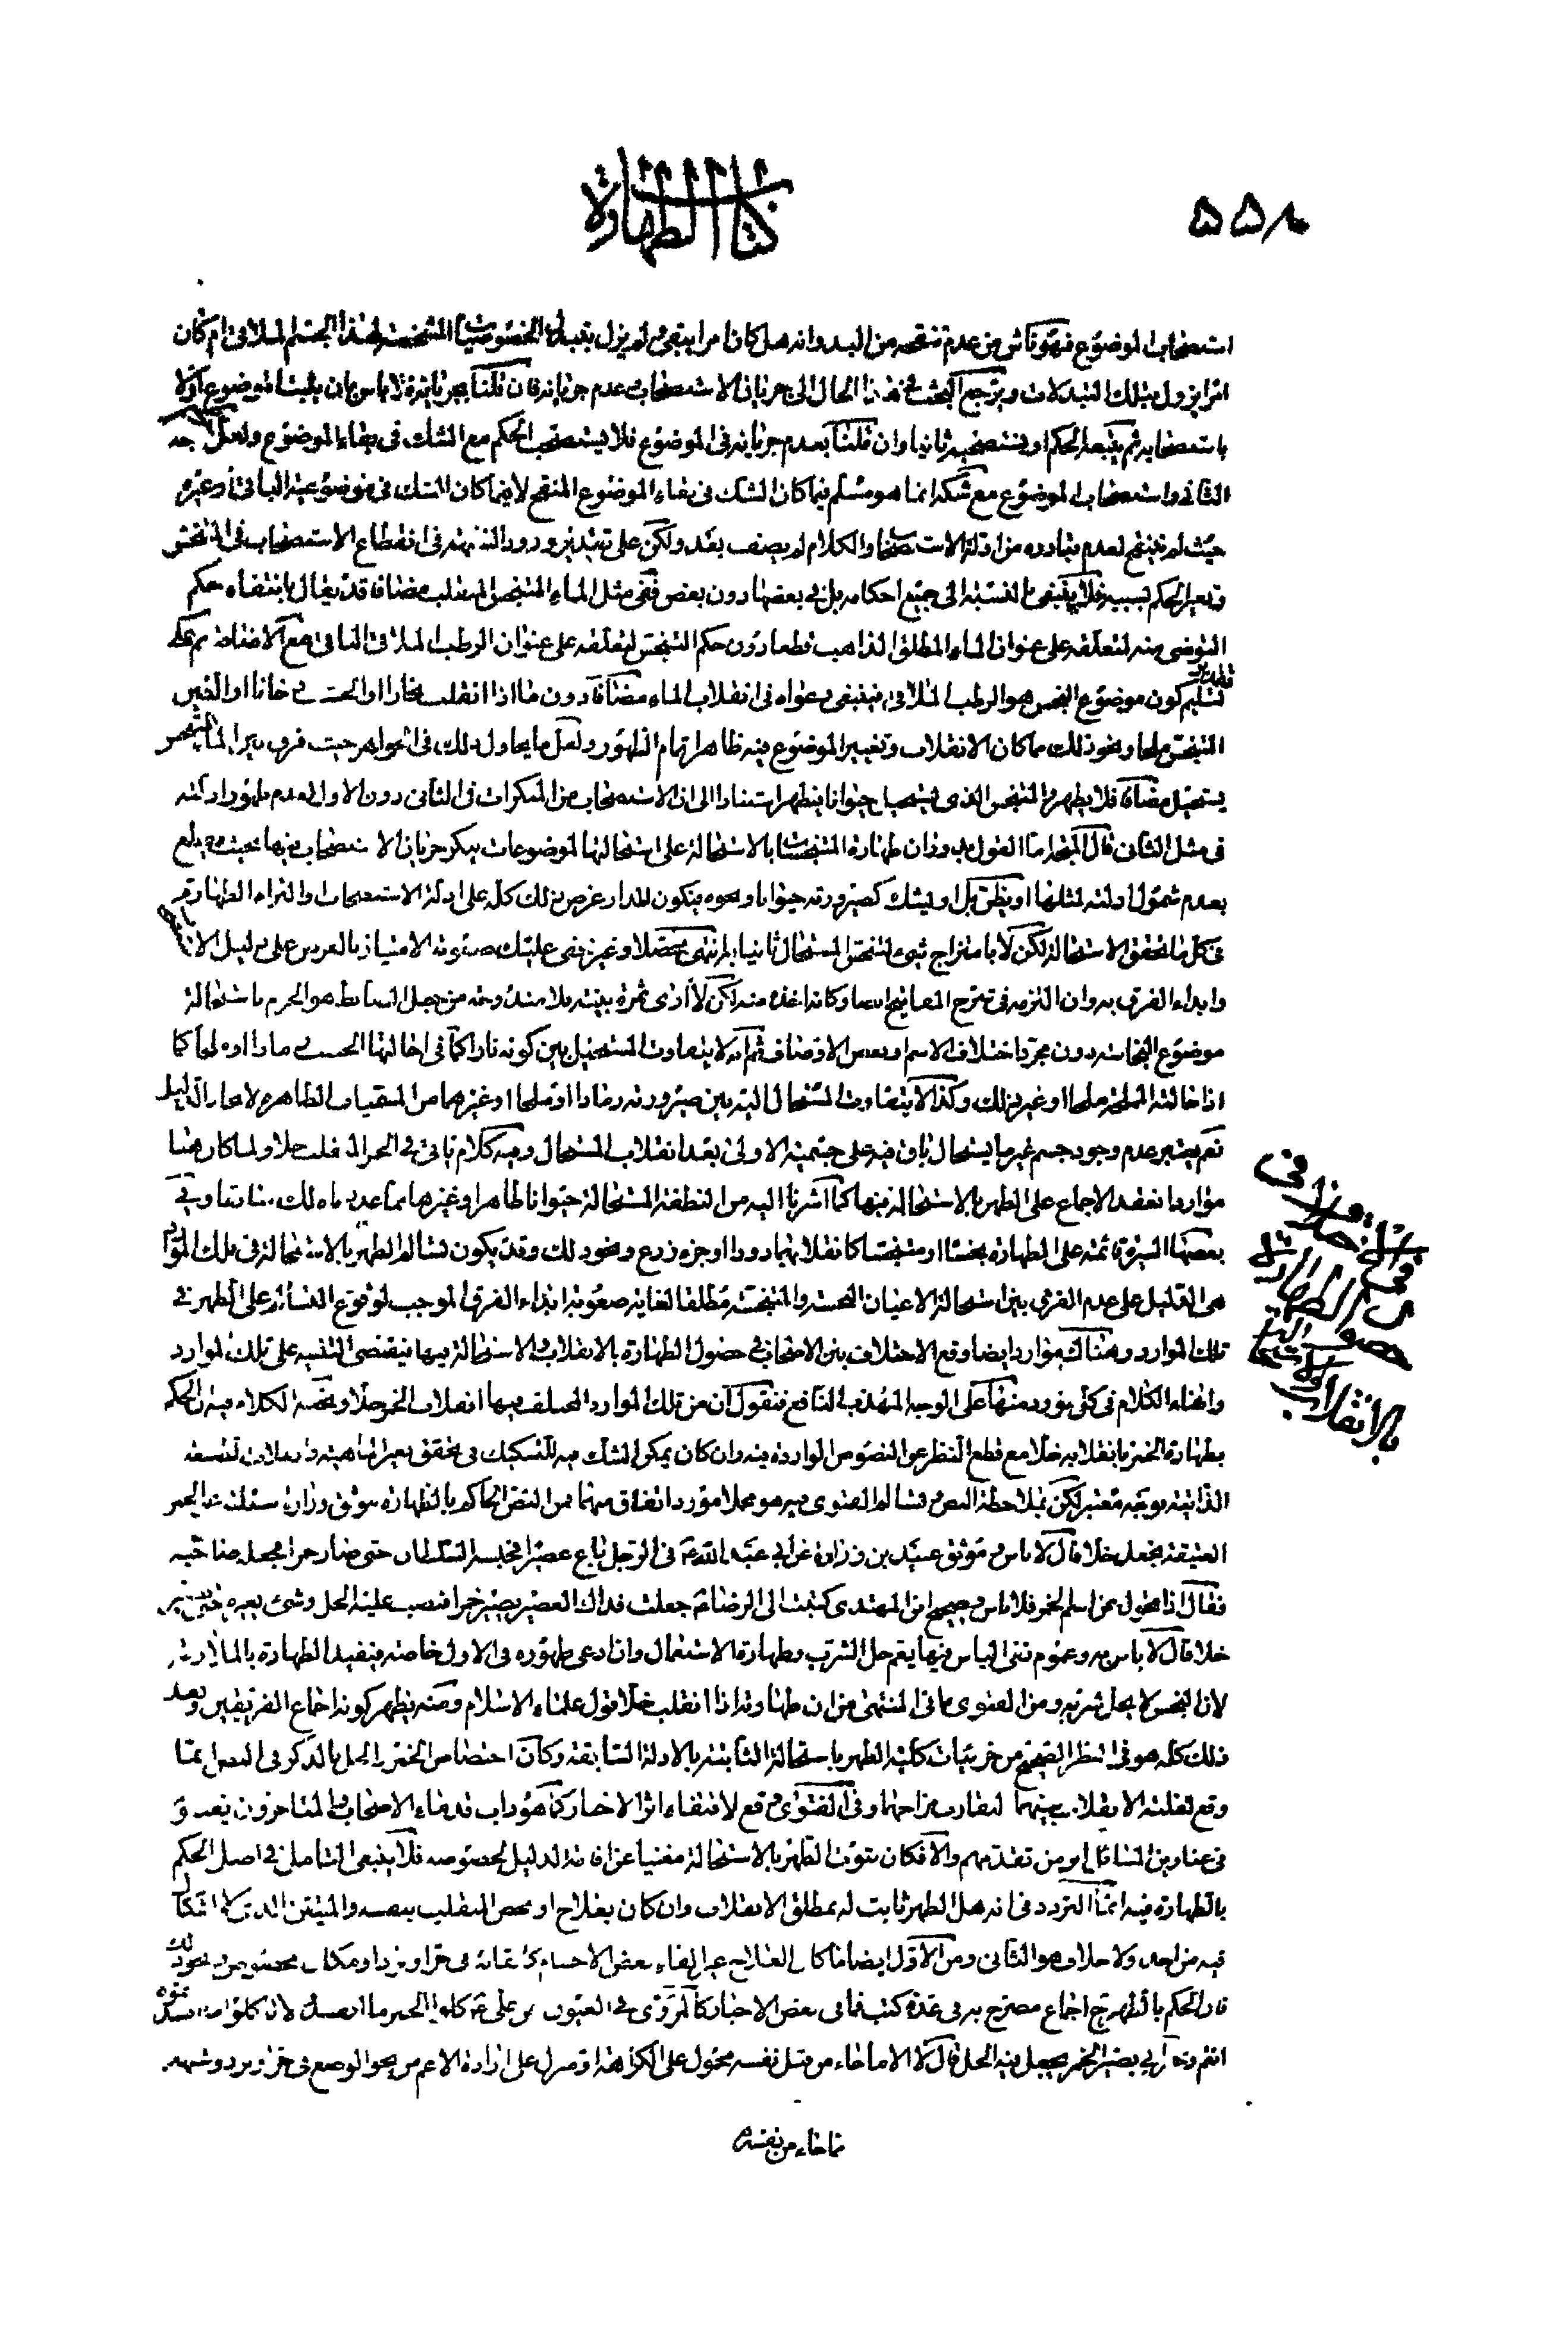 كتاب الطهارة
٥٥٨
استصحاب الموضوع فهو ناش من عدم تنقحه من البدو وانه هل كان امرا يبقى ولم يزل بتبدل الخصوصيات المشخصة لهذا الجسم الملاقى ام كان
امرا يزول بتلك التبدلات ويرجع البحث فى هذا الحال الى جريان الاستصحاب وعدم جريانه فان قلنا بجريانه فلا باس بان يثبت الموضوع اولا
باستصحابه ثم يتبعه الحكم او يستصحب ثانيا وان قلنا بعدم جريانه فى الموضوع فلا يستصحب الحكم مع الشك فى بقاء الموضوع ولعل الاوجه
الثانى واستصحاب الموضوع مع شكه انما هو مسلم فيما كان الشك فى بقاء الموضوع المنقح لا فيما كان الشك فى موضوعية الباقى او غيره
حيث لم يتنقح لعدم تبادره من ادلة الاستصحاب والكلام لم يصف بعد ولكن على تقدير ورود الشبهة فى انقطاع الاستصحاب فى المتنجس
وتغير الحكم بسببه فلا ينبغى بالنسبة الى جميع احكامه بل فى بعضها دون بعض ففى مثل الماء المتنجس المنقلب مضافا قد يقال بانتفاء حكم
التوضى منه لتعلقه على عنوان الماء المطلق الذاهب قطعا دون حكم التنجس لتعلقه على عنوان الرطب الملاقى الباقى مع الاضافة
لتسليم كون موضوع النجس هو الرطب الملاقى فينبغى دعواه فى انقلاب الماء مضافا دون ما اذا انقلب بخارا او الخشب دخانا او العجين
المتنجس ملحا ونحو ذلك مما كان الانقلاب وتغيير الموضوع فيه ظاهرا تمام الظهور ولعل ما يحاول ذلك فى الجواهر حيث فرق بين الماء المتنجس
يستحيل مضافا فلا يطهر والمتنجس الذى يستحيل حيوانا فيطهر استنادا الى ان الاستصحاب من المنكرات فى الثانى دون الاول لعدم ظهور ادلته
فى مثل الثانى قال
بعدم شمول ادلته لمثلها او يظن بل او يشك كصيرورته حيوانا ونحوه فيكون المدار غرض ذلك كله على ادلة الاستصحاب والتزام الطهارة
فى كل ما تحقق الاستحالة لكن لا بامتزاج شىء لتنجس المستحال ثانيا انتهى محصلا وغير خفى عليك صعوبة الامتياز بالعرض على دليل الاستصحاب
وابداء الفرق به وان التزمه فى شرح المفاتيح ايضا وكانه اخذه منه لكن لا ارى ثمرة بينه بلا منشأ ومنه من جعل الضابط هو الجزم باستحالة
موضوع النجاسة دون مجرد اختلاف الاسم وبعض الاوصاف ثم انه لا يتفاوت المستحيل بين كونه نارا كما فى احالتها الخشب رمادا او هواء كما
اذا احالته المملحة ملحا او غير ذلك وكذا لا يتفاوت المستحال اليه بين صيرورته رمادا او ملحا او غيرهما من المسميات الطاهرة لاتحاد الدليل
نعم يعتبر عدم وجود جسم غير ما يستحال باق فيه على جسميته الاولى بعد انقلاب المستحال وفيه كلام ياتى فى الخمر المنقلب خلا ولما كان هنا
موارد انعقد الاجماع على الطهر بالاستحالة فيها كما اشرنا اليه من النطفة المستحالة حيوانا طاهرا وغيرها مما عددناه لك سابقا وفى
بعضها السيرة قائمة على الطهارة نجسا او متنجسا كانقلابهما دودا او جزء زرع ونحو ذلك وقد يكون تسالم الطهر بالاستحالة فى تلك الموارد
هى الدليل على عدم الفرق بين استحالة الاعيان النجسة والمتنجسة مطلقا لغاية صعوبة ابداء الفرق الموجب لوقوع التسالم على الطهر فى
تلك الموارد وهناك موارد ايضا وقع الاختلاف بين الاصحاب فى حصول الطهارة بالانقلاب والاستحالة فيها فيقتضى التنبيه على تلك الموارد
وانهاء الكلام فى كل مورد منها على الوجه المهذب النافع فنقول ان من تلك الموارد المختلف فيها انقلاب الخمر خلا ومحصل الكلام فيه ان الحكم
بطهارة الخمر بانقلابه خلا مع قطع النظر عن النصوص الواردة فيه وان كان يمكن الشك فيه للتشكيك فى تحقق تغير الماهية
الذاتية بوجه معتبر لكن بملاحظة النص وتسالم الفتوى صير هو محلا مورد اتفاق منهما فمن النص الحاكم بالطهارة موثق زرارة سئلته عن الخمر
العتيقة يجعل خلا قال لا باس وموثق عبيد بن زرارة عن ابى عبد الله ع فى الرجل باع عصيرا فحبسه السلطان حتى صار خمرا فجعله صاحبه خلا
فقال اذا تحول عن اسم الخمر فلا باس وصحيح ابن المهتدى كتبت الى الرضا ع جعلت فداك العصير يصير خمرا فيصب عليه الخل وشىء يغيره حتى يصير
خلا قال لا باس به وعموم نفى الباس فيها يعم حل الشرب وطهارة الاستعمال وان ادعى ظهوره فى الاول خاصة فيفيد الطهارة بالملازمة
لان النجس لا يحل شربه ومن الفتوى ما فى المنتهى من ان طهارته اذا انقلب خلا قول علماء الاسلام ومنه يظهر كونه اجماع الفريقين وبعد
ذلك كله هو فى النظر الصحيح من جزئيات كلية الطهر باستحالة الثابتة بالادلة السابقة وكان اختصاص الخمر والخل بالذكر فى النصوص مما
وقع لغلبة الانقلاب بينهما لتقارب مزاجهما وفى الفتوى وقع لاقتفاء اثر الاخبار كما هو داب قدماء الاصحاب والمتاخرون
فى عناوين المسائل اثر من تقدمهم والا فكان ثبوت الطهر بالاستحالة مغنيا عن اقامة الدليل بخصوصه فلا ينبغى التامل فى اصل الحكم
بالطهارة فيه انما التردد فى انه هل الطهر ثابت له بمطلق الانقلاب وان كان بعلاج او يخص المنقلب بنفسه والمتيقن الذى لا اشكال
فيه من احد ولا خلاف هو الثانى ومن الاول ايضا ما كان العلاج بغير القاء بعض الاجسام كابقائه فى حر او برد او مكان مخصوص ونحو ذلك
فان الحكم بالطهر ح اجماع مصرح به فى عدة كتب فما فى بعض الاخبار كالمروى فى العيون عن على ع كلوا الخمر ما انفسد ولا تاكلوا ما افسدتموه
انتم و ابى بصير الخمر يجعل فيه الخل قال لا الا ما جاء من قبل نفسه محمول على الكراهة او منزل على ارادة الاعم من نحو الوضع فى حر او برد وشبهه
ما جاء من نفسه
فى
حصول الطهارة
بالانقلاب